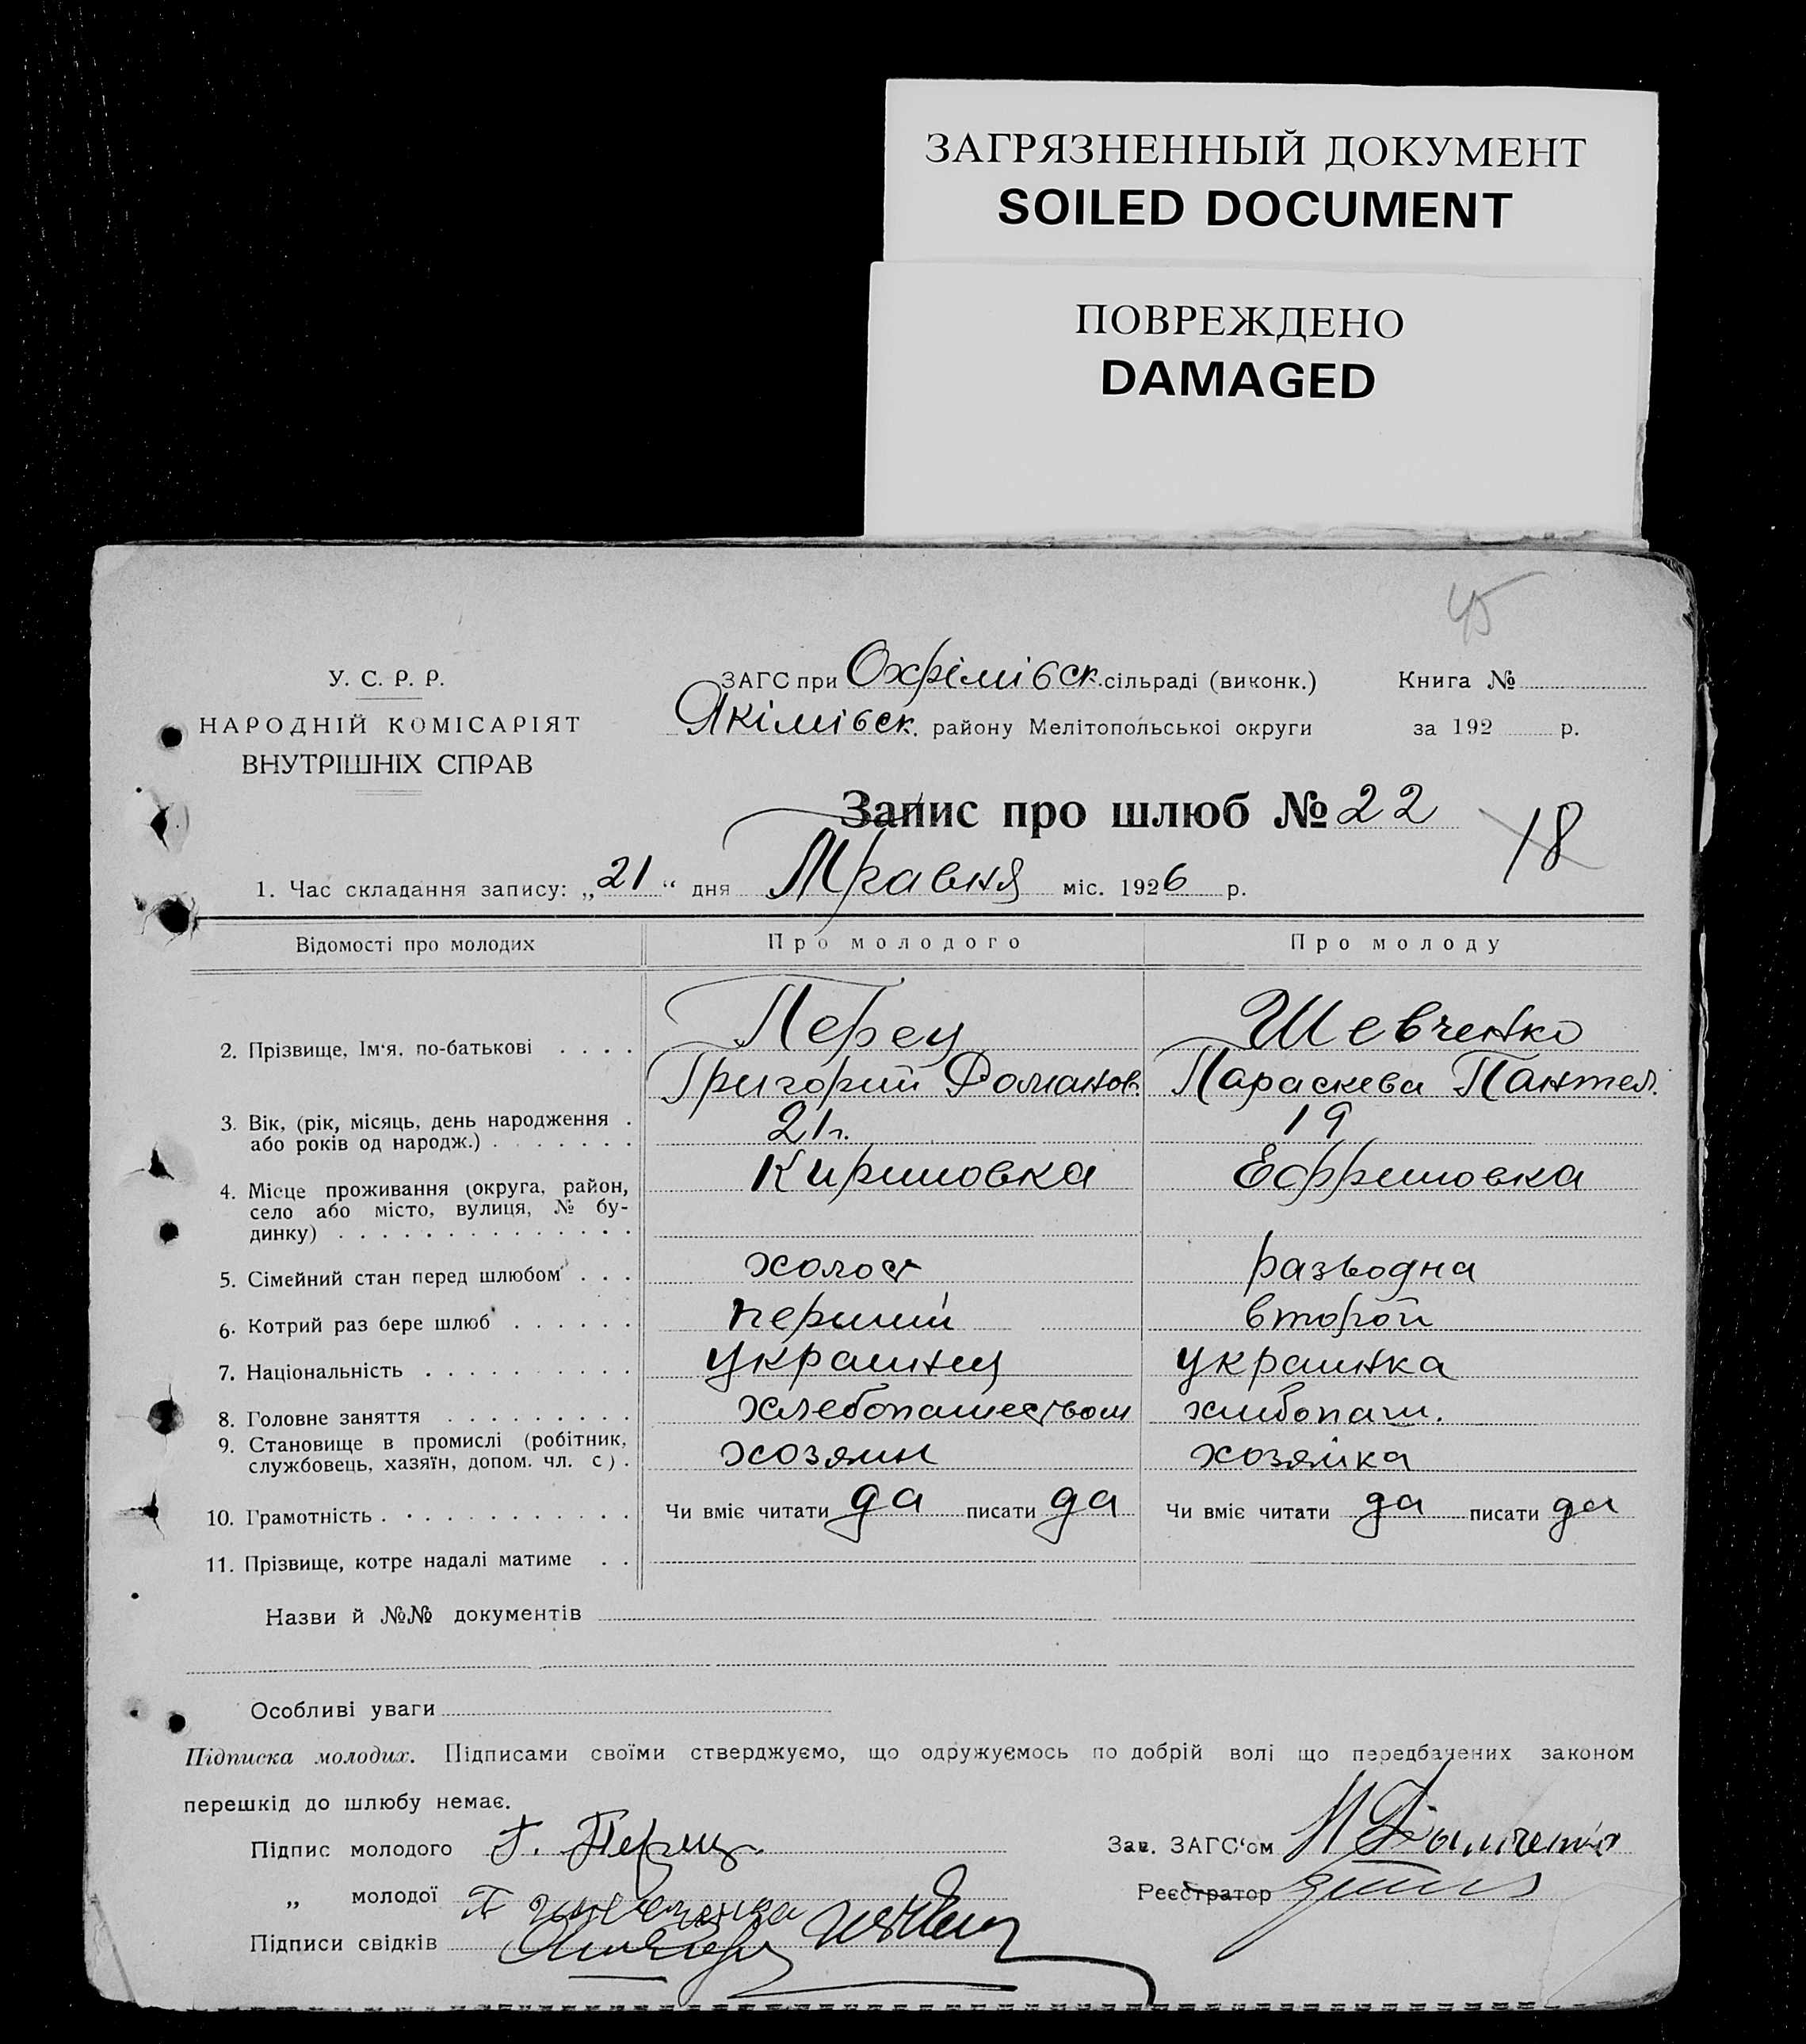 ЗАГРЯЗНЕННЫЙ ДОКУМЕНТ
SOILED DOCUMENT
ПОВРЕЖДЕНО
DAMAGED
45
У. С. Р. Р.
НАРОДНІЙ КОМІСАРІЯТ
ВНУТРІШНІХ СПРАВ
ЗАГС при Охфімівск. сільраді (виконк.)
Якімівск. району Мелітопольської округи
Книга №
за 192 р.
Запис про шлюб № 22
18
1. Час складання запису: „21“ дня Травня міс. 1926 р.
Відомості про молодих Про молодого Про молоду
2. Прізвище, Ім'я, по-батькові . . . . Перец Шевченко
Григорий Домонов. Параскева Пантел.
3. Вік, (рік, місяць, день народження . 21 г. 19
або років од народж.) . . . . . . .
4. Місце проживання (округа, район, Кирилловка Ефримовка
село або місто, вулиця, № бу-
динку) . . . . . . . . . . . . . .
5. Сімейний стан перед шлюбом . . . холост разводна
6. Котрий раз бере шлюб . . . . . . перший второй
7. Національність . . . . . . . . . . украинец украинка
8. Головне заняття . . . . . . . . . хлебопашеством хлибопаш.
9. Становище в промислі (робітник, хозяин хозяйка
службовець, хазяїн, допом. чл. с) .
10. Грамотність . . . . . . . . . . . Чи вміє читати да писати да Чи вміє читати да писати да
11. Прізвище, котре надалі матиме . .
Назви й №№ документів
Особливі уваги
Підписка молодих. Підписами своїми стверджуємо, що одружуємось по добрій волі що передбачених законом
перешкід до шлюбу немає.
Підпис молодого Г. Перец
„ молодої П
Підписи свідків
Зав. ЗАГС'ом
Реєстратор